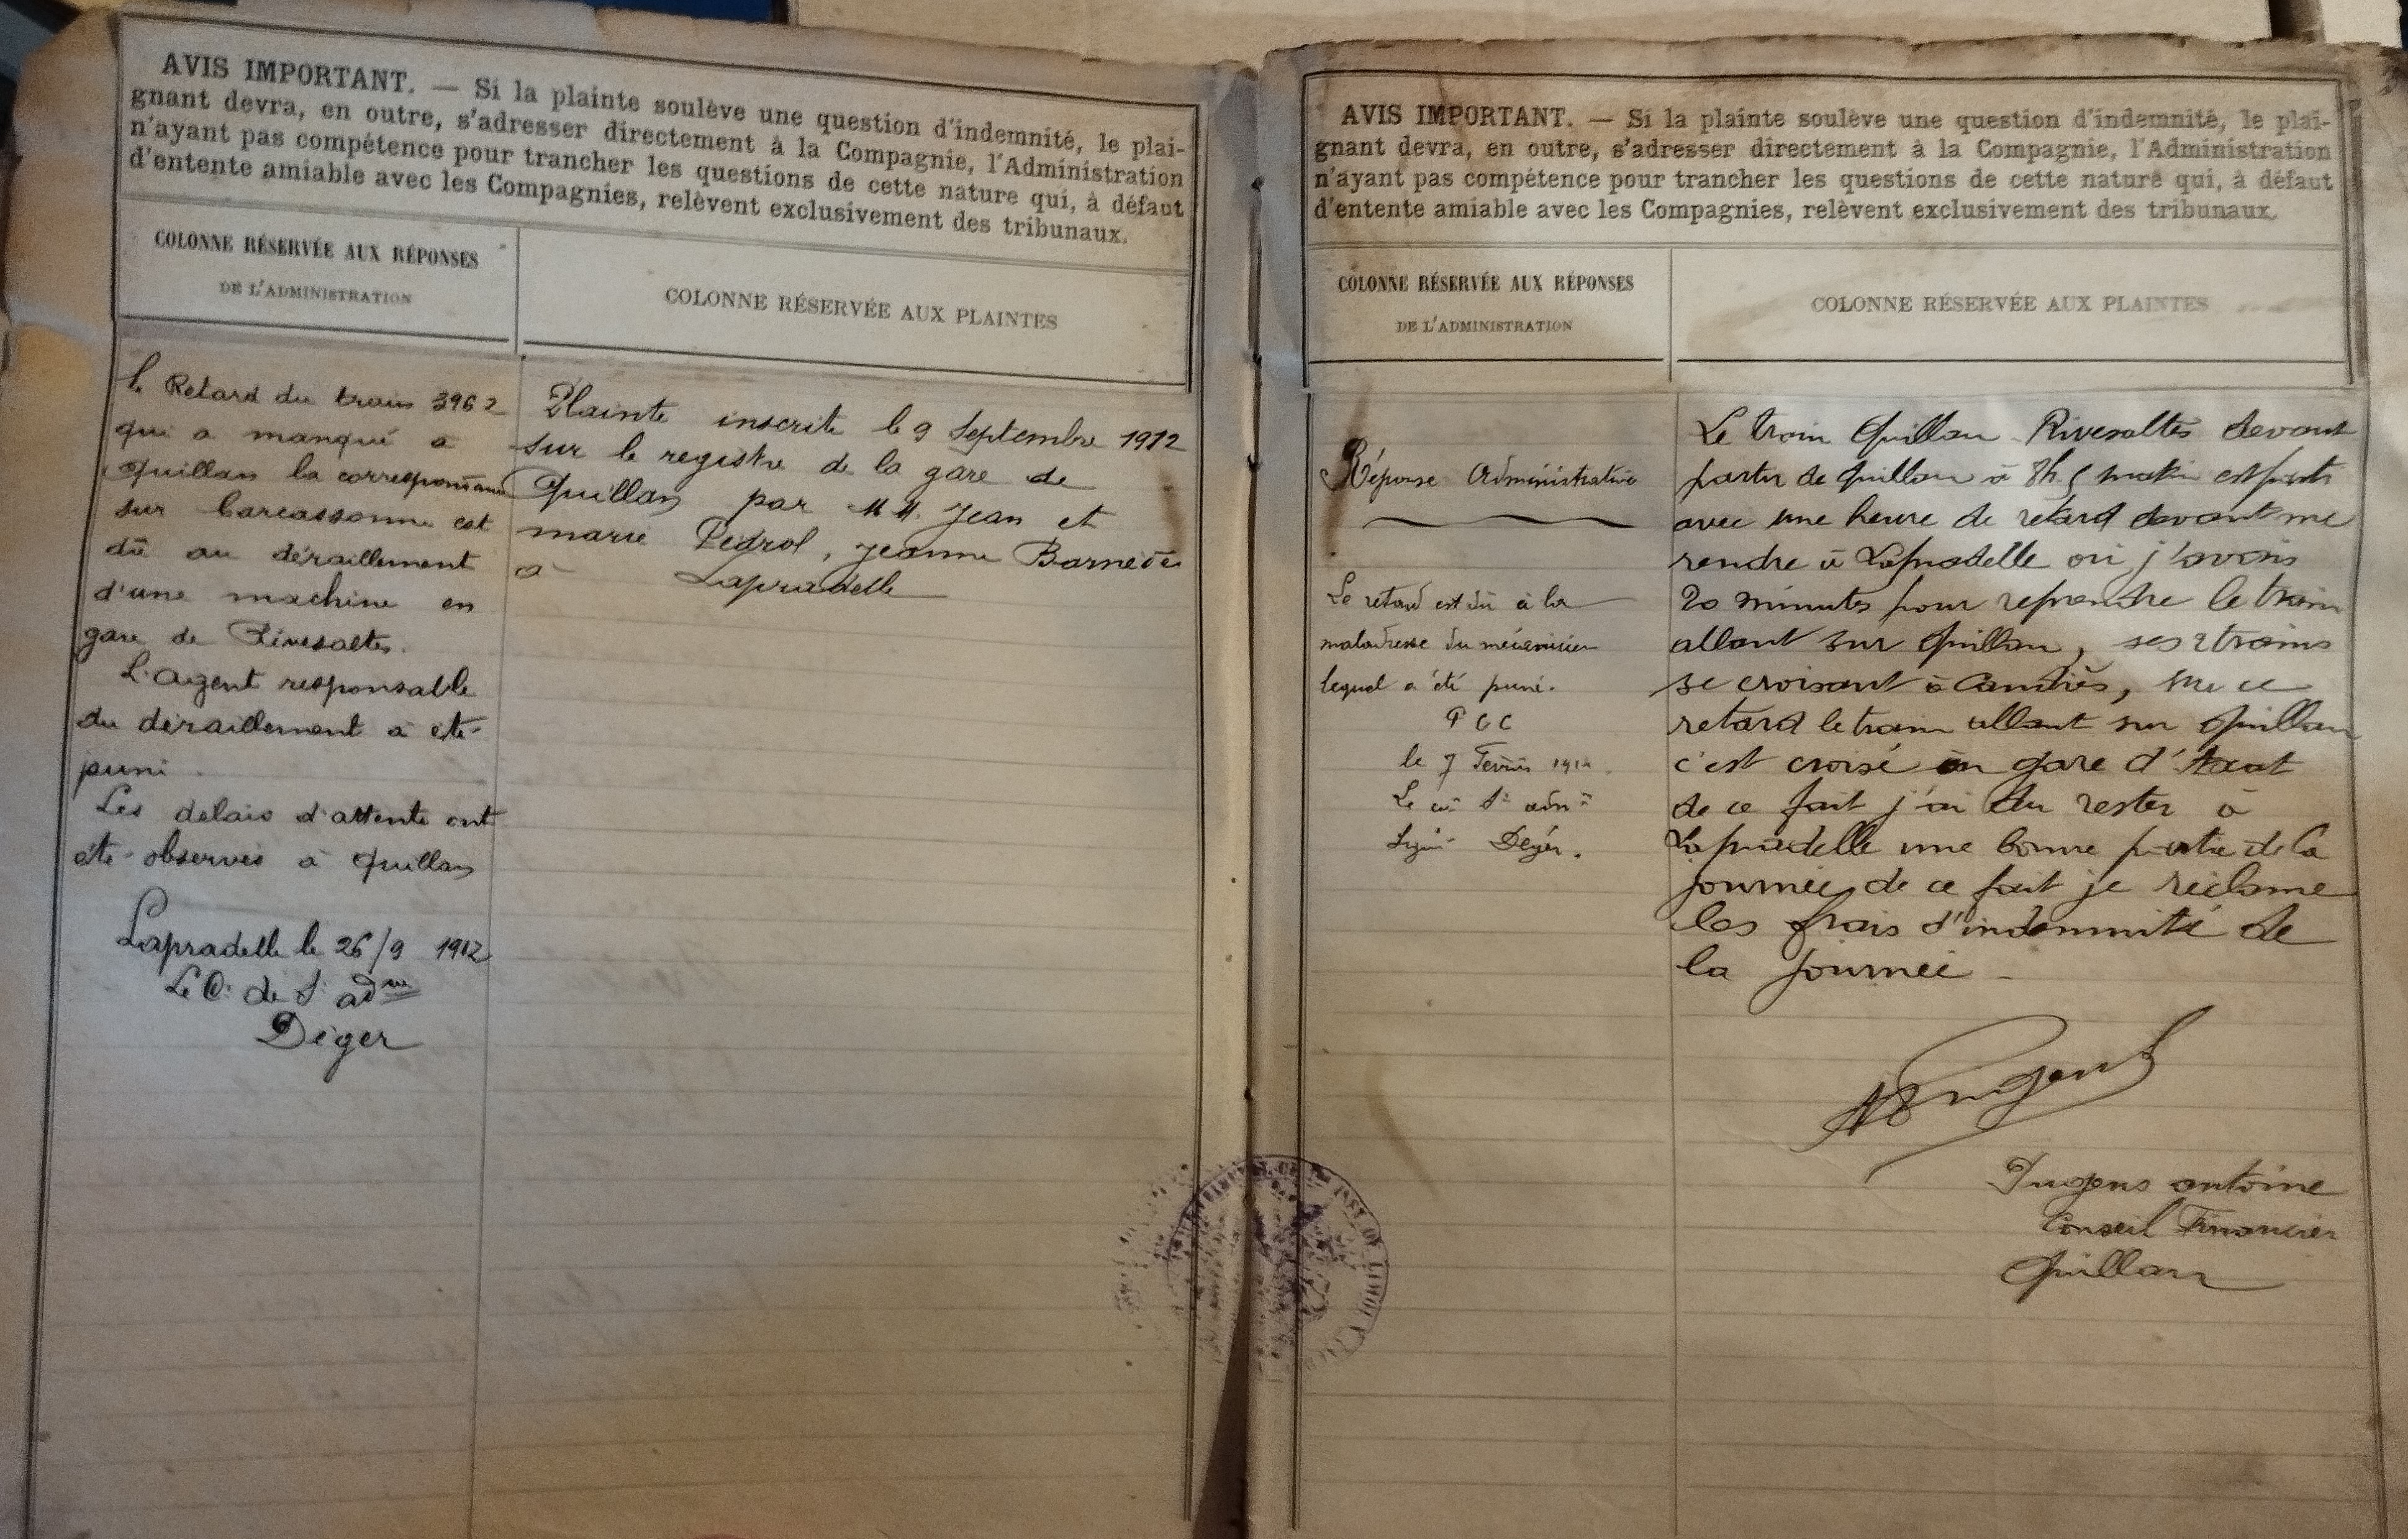 AVIS IMPORTANT. — Si la plainte soulève une question d'indemnité, le plai-
gnant devra, en outre, s'adresser directement à la Compagnie, l'Administration
n'ayant pas compétence pour trancher les questions de cette nature qui, à défaut
d'entente amiable avec les Compagnies, relèvent exclusivement des tribunaux.
COLONNE RÉSERVÉE AUX RÉPONSES
DE L'ADMINISTRATION
COLONNE RÉSERVÉE AUX PLAINTES
le Retard du train 3962
qui a manqué a
Quillan la correspondance
sur Carcassonne est
dû au déraillement
d'une machine en
gare de Rivesaltes.
L'agent responsable
du déraillement a été
puni.
Les delais d'attente ont
été observés à Quillan
Lapradelle le 26/9 1912
Le C. de S. adve
Déger
Plainte inscrite le 9 Septembre 1912
sur le registre de la gare de
Quillan par MM. Jean et
marie Pedrol, Jeanne Barnèdes
à Lapradelle
AVIS IMPORTANT. — Si la plainte soulève une question d'indemnité, le plai-
gnant devra, en outre, s'adresser directement à la Compagnie, l'Administration
n'ayant pas compétence pour trancher les questions de cette nature qui, à défaut
d'entente amiable avec les Compagnies, relèvent exclusivement des tribunaux.
COLONNE RÉSERVÉE AUX RÉPONSES
DE L'ADMINISTRATION
COLONNE RÉSERVÉE AUX PLAINTES
Réponse Administrative
Le retard est dû à la
maladresse du mécanicien
lequel a été puni.
PCC
le 7 Février 1914
Le
Signé Déger.
Le train Quillan Rivesaltes devant
partir de Quillan à 8h.5 matin est parti
avec une heure de retard devant me
rendre à Lapradelle ou j'avais
20 minutes pour reprendre le train
allant sur Quillan, ses 2 trains
se croisant à Caudiès, sur ce
retard le train allant sur Quillan
c'est croisé en gare d'Axat
de ce fait j'ai du rester à
Lapradelle une bonne partie de la
journée, de ce fait je réclame
les frais d'indemnité de
la journée -
Pugens antoine
Conseil Financier
Quillan